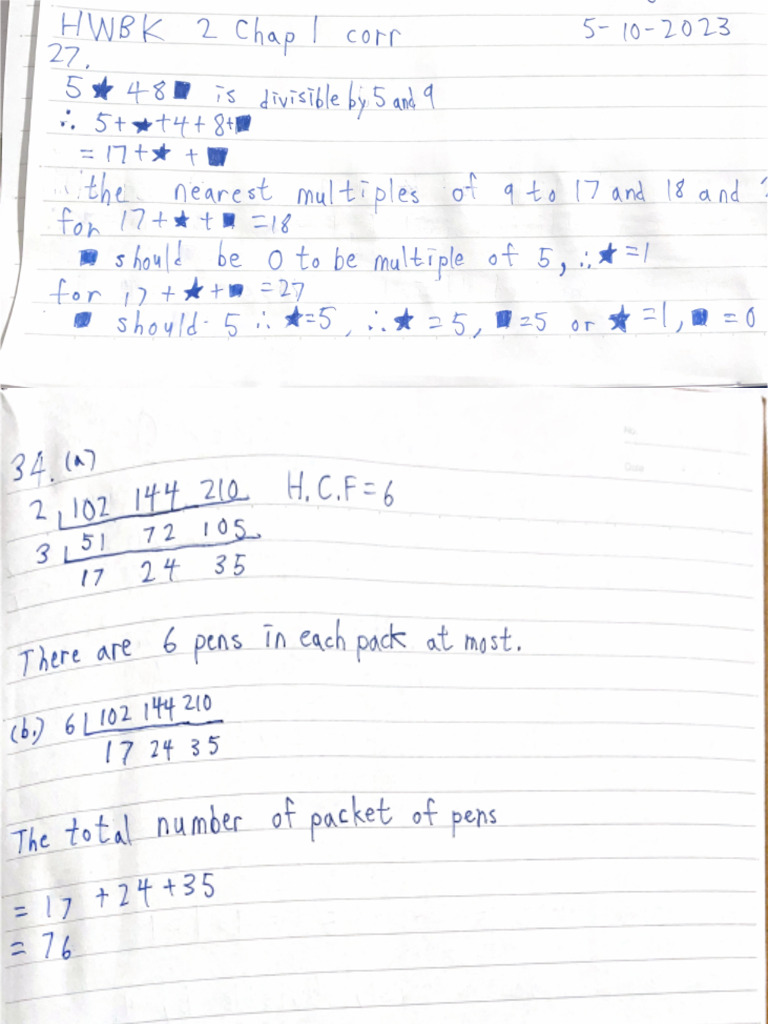 HWBK 2 Chap 1 corr 5-10-2023
27.
5★48■ is divisible by 5 and 9
∴ 5+★+4+8+■
=17+★+■
the nearest multiples of 9 to 17 and 18 and
for 17+★+■=18
■ should be 0 to be multiple of 5, ∴★=1
for 17+★+■=27
■ should 5 ∴★=5, ∴★=5, ■=5 or ★=1, ■=0
34. (a)
2 102 144 210 H.C.F=6
3 51 72 105
17 24 35
There are 6 pens in each pack at most.
(b.) 6 102 144 210
17 24 35
The total number of packet of pens
=17+24+35
=76